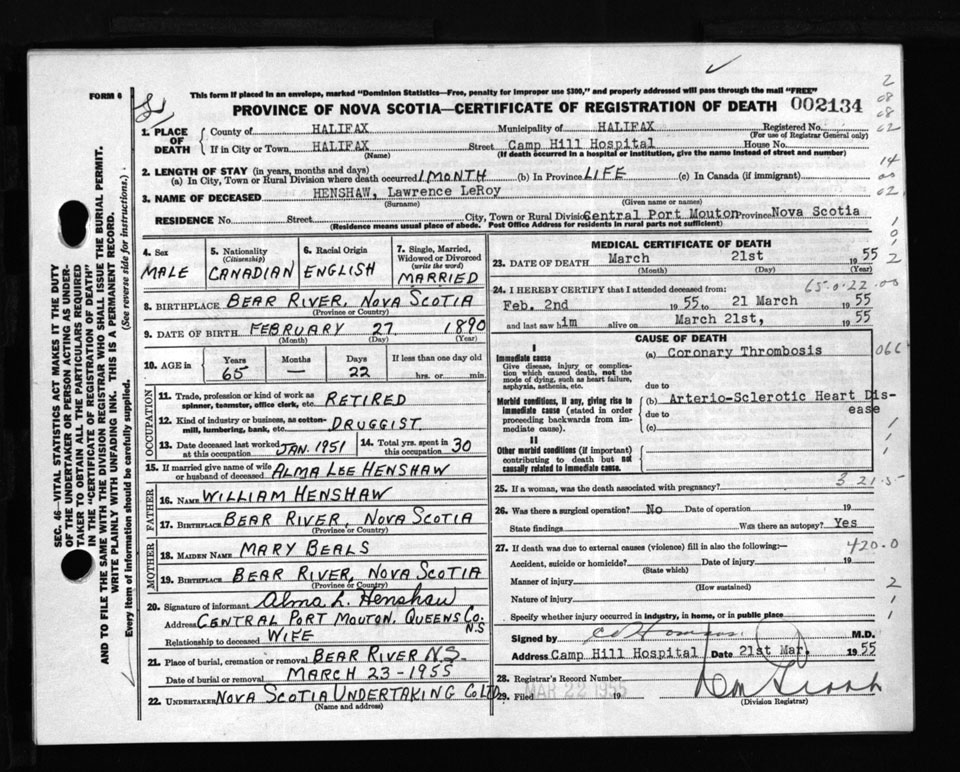 This form if placed in an envelope, marked "Dominion Statistics—Free, penalty for improper use $300," and properly addressed will pass through the mail "FREE"
FORM 6
PROVINCE OF NOVA SCOTIA—CERTIFICATE OF REGISTRATION OF DEATH 002134
SEC. 46—VITAL STATISTICS ACT MAKES IT THE DUTY
OF THE UNDERTAKER OR PERSON ACTING AS UNDER-
TAKER TO OBTAIN ALL THE PARTICULARS REQUIRED
IN THE "CERTIFICATE OF REGISTRATION OF DEATH"
AND TO FILE THE SAME WITH THE DIVISION REGISTRAR WHO SHALL ISSUE THE BURIAL PERMIT.
WRITE PLAINLY WITH UNFADING INK. THIS IS A PERMANENT RECORD.
Every item of information should be carefully supplied. (See reverse side for instructions.)
1. PLACE OF DEATH
County of HALIFAX Municipality of HALIFAX Registered No.
(For use of Registrar General only)
If in City or Town HALIFAX Street Camp Hill Hospital House No.
(Name) (If death occurred in a hospital or institution, give the name instead of street and number)
2. LENGTH OF STAY (in years, months and days)
(a) In City, Town or Rural Division where death occurred 1 MONTH (b) In Province LIFE (c) In Canada (if immigrant)
3. NAME OF DECEASED HENSHAW, Lawrence LeRoy
(Surname) (Given name or names)
RESIDENCE No. Street City, Town or Rural Division Central Port Mouton Province Nova Scotia
(Residence means usual place of abode. Post Office Address for residents in rural parts not sufficient)
4. Sex
MALE
5. Nationality
(Citizenship)
CANADIAN
6. Racial Origin
ENGLISH
7. Single, Married,
Widowed or Divorced
(write the word)
MARRIED
8. BIRTHPLACE BEAR RIVER, NOVA SCOTIA
(Province or Country)
9. DATE OF BIRTH FEBRUARY 27 1890
(Month) (Day) (Year)
10. AGE in Years Months Days If less than one day old
65 — 22 hrs. or min.
OCCUPATION
11. Trade, profession or kind of work as
spinner, teamster, office clerk, etc. RETIRED
12. Kind of industry or business, as cotton-
mill, lumbering, bank, etc. DRUGGIST
13. Date deceased last worked
at this occupation JAN. 1951
14. Total yrs. spent in
this occupation 30
15. If married give name of wife
or husband of deceased ALMA LEE HENSHAW
FATHER
16. Name WILLIAM HENSHAW
17. Birthplace BEAR RIVER, NOVA SCOTIA
(Province or Country)
MOTHER
18. MAIDEN NAME MARY BEALS
19. Birthplace BEAR RIVER, NOVA SCOTIA
(Province or Country)
20. Signature of informant Alma L. Henshaw
Address CENTRAL PORT MOUTON, QUEENS CO. N.S
Relationship to deceased WIFE
21. Place of burial, cremation or removal BEAR RIVER N.S.
Date of burial or removal MARCH 23-1955
22. UNDERTAKER NOVA SCOTIA UNDERTAKING CO LTD
(Name and address)
MEDICAL CERTIFICATE OF DEATH
23. DATE OF DEATH March 21st 1955
(Month) (Day) (Year)
65-0-22
24. I HEREBY CERTIFY that I attended deceased from:
Feb. 2nd 1955 to 21 March 1955
and last saw him alive on March 21st, 1955
CAUSE OF DEATH
I
Immediate cause
Give disease, injury or complica-
tion which caused death, not the
mode of dying, such as heart failure,
asphyxia, asthenia, etc.
(a) Coronary Thrombosis
due to
Morbid conditions, if any, giving rise to
immediate cause (stated in order
proceeding backwards from im-
mediate cause).
(b) Arterio-Sclerotic Heart Dis-
ease
due to
(c)
II
Other morbid conditions (if important)
contributing to death but not
causally related to immediate cause.
25. If a woman, was the death associated with pregnancy?
26. Was there a surgical operation? No Date of operation 19
State findings Was there an autopsy? Yes
27. If death was due to external causes (violence) fill in also the following:—
420.0
Accident, suicide or homicide? Date of injury 19
(State which)
Manner of injury
(How sustained)
Nature of injury
Specify whether injury occurred in industry, in home, or in public place
Signed by M.D.
Address Camp Hill Hospital Date 21st Mar. 1955
28. Registrar's Record Number
29. Filed MAR 22 19
(Division Registrar)